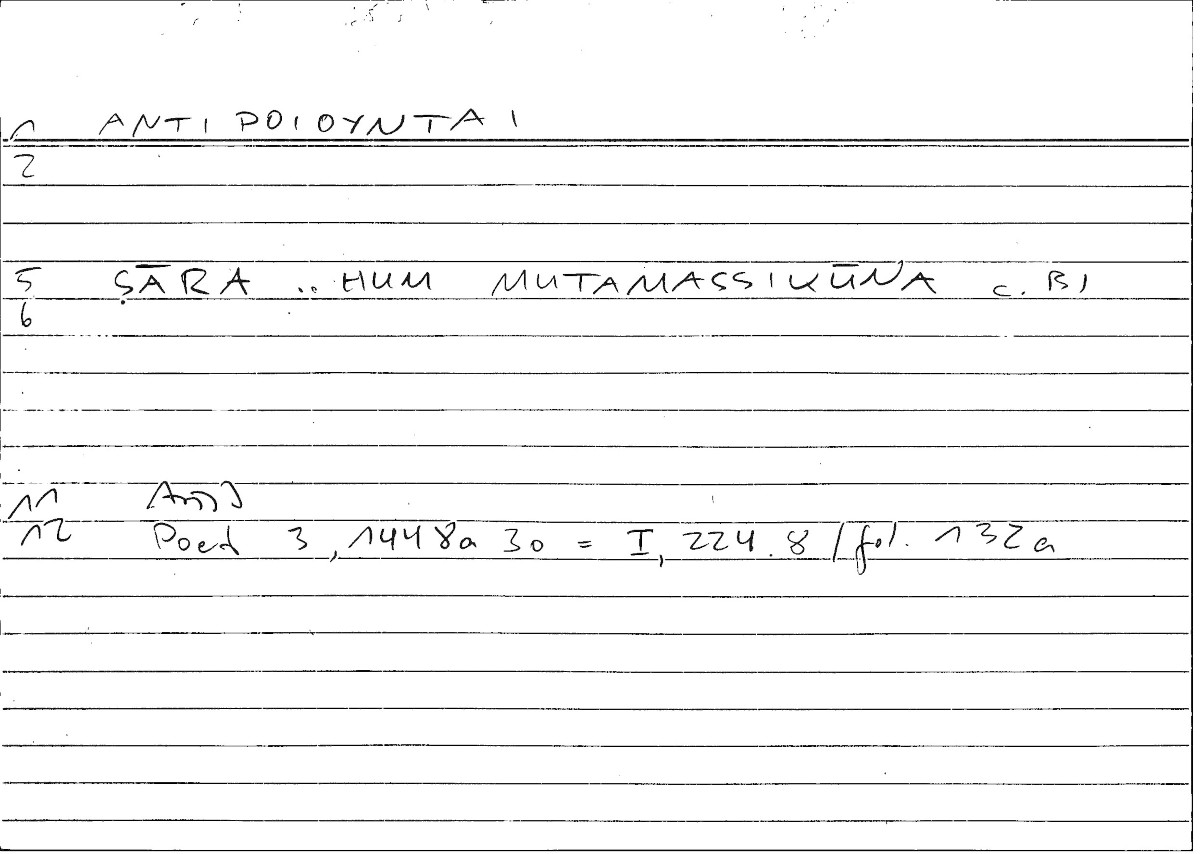 1 ANTIPOIOYNTAI
2
5 ṢĀRA .. HUM MUTAMASSIKŪNA c. BI
6
11
12 Poet 3,1448a 30 = I, 224.8 / fol. 132a